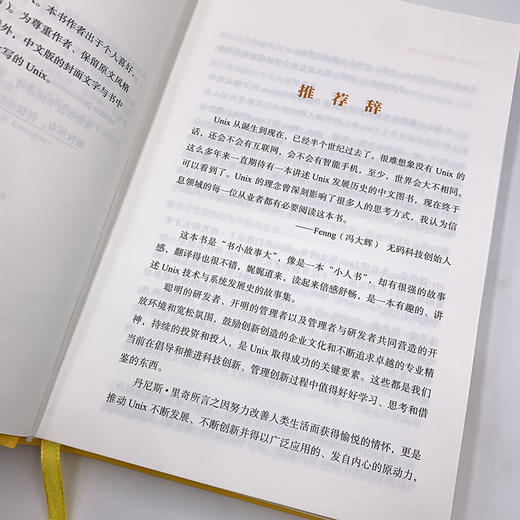 本书作者出于个人喜好、
)。为尊重作者、保留原文风格
外，中文版的封面文字与书中
写的 Unix。
推荐辞
Unix 从诞生到现在，已经半个世纪过去了。很难想象没有 Unix 的
话，还会不会有互联网，会不会有智能手机，至少，世界会大不相同。
这么多年来一直期待有一本讲述 Unix 发展历史的中文图书，现在终于
可以看到了。Unix 的理念曾深刻影响了很多人的思考方式，我认为信
息领域的每一位从业者都有必要阅读这本书。
——Fenng（冯大辉） 无码科技创始人
这本书是“书小故事大”，像是一本“小人书”，却有很强的故事
感，翻译得也很不错，娓娓道来，读起来倍感舒畅，是一本有趣的、讲
述 Unix 技术与系统发展史的故事集。
聪明的研发者、开明的管理者以及管理者与研发者共同营造的开
放环境和宽松氛围，鼓励创新创造的企业文化和不断追求卓越的专业精
神，持续的投资和投入，是 Unix 取得成功的关键要素。这些都是我们
当前在倡导和推进科技创新、管理创新过程中值得好好学习、思考和借
鉴的东西。
丹尼斯·里奇所言之因努力改善人类生活而获得愉悦的情怀，更是
推动 Unix 不断发展、不断创新并得以广泛应用的、发自内心的原动力，